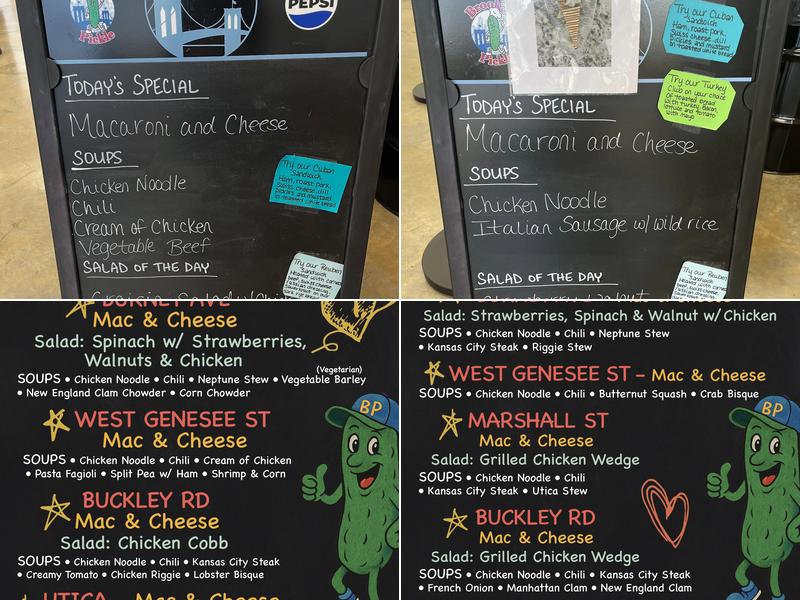 Pickle
PEPSI
TODAY'S SPECIAL
Macaroni and Cheese
SOUPS
Chicken Noodle
Chili
Cream of Chicken
Vegetable Beef
SALAD OF THE DAY
Try our Cuban
Sandwich
Ham, roast pork,
Swiss cheese, dill
pickles and mustard
on toasted white bread
Try our Reuben
Sandwich
Pickle
Try our Cuban
Sandwich
Ham, roast pork,
Swiss cheese, dill
pickles and mustard
on toasted white bread
Try our Turkey
Club on your choice
of toasted bread
with turkey, bacon,
lettuce and tomato
with mayo
TODAY'S SPECIAL
Macaroni and Cheese
SOUPS
Chicken Noodle
Italian Sausage w/ wild rice
SALAD OF THE DAY
Try our Reuben
Sandwich
BURNET AVE
Mac & Cheese
Salad: Spinach w/ Strawberries,
Walnuts & Chicken
(Vegetarian)
SOUPS • Chicken Noodle • Chili • Neptune Stew • Vegetable Barley
• New England Clam Chowder • Corn Chowder
WEST GENESEE ST
Mac & Cheese
SOUPS • Chicken Noodle • Chili • Cream of Chicken
• Pasta Fagioli • Split Pea w/ Ham • Shrimp & Corn
BUCKLEY RD
Mac & Cheese
Salad: Chicken Cobb
SOUPS • Chicken Noodle • Chili • Kansas City Steak
• Creamy Tomato • Chicken Riggie • Lobster Bisque
UTICA - Mac & Cheese
BP
Salad: Strawberries, Spinach & Walnut w/ Chicken
SOUPS • Chicken Noodle • Chili • Neptune Stew
• Kansas City Steak • Riggie Stew
WEST GENESEE ST – Mac & Cheese
SOUPS • Chicken Noodle • Chili • Butternut Squash • Crab Bisque
MARSHALL ST
Mac & Cheese
Salad: Grilled Chicken Wedge
SOUPS • Chicken Noodle • Chili
• Kansas City Steak • Utica Stew
BUCKLEY RD
Mac & Cheese
Salad: Grilled Chicken Wedge
SOUPS • Chicken Noodle • Chili • Kansas City Steak
• French Onion • Manhattan Clam • New England Clam
BP